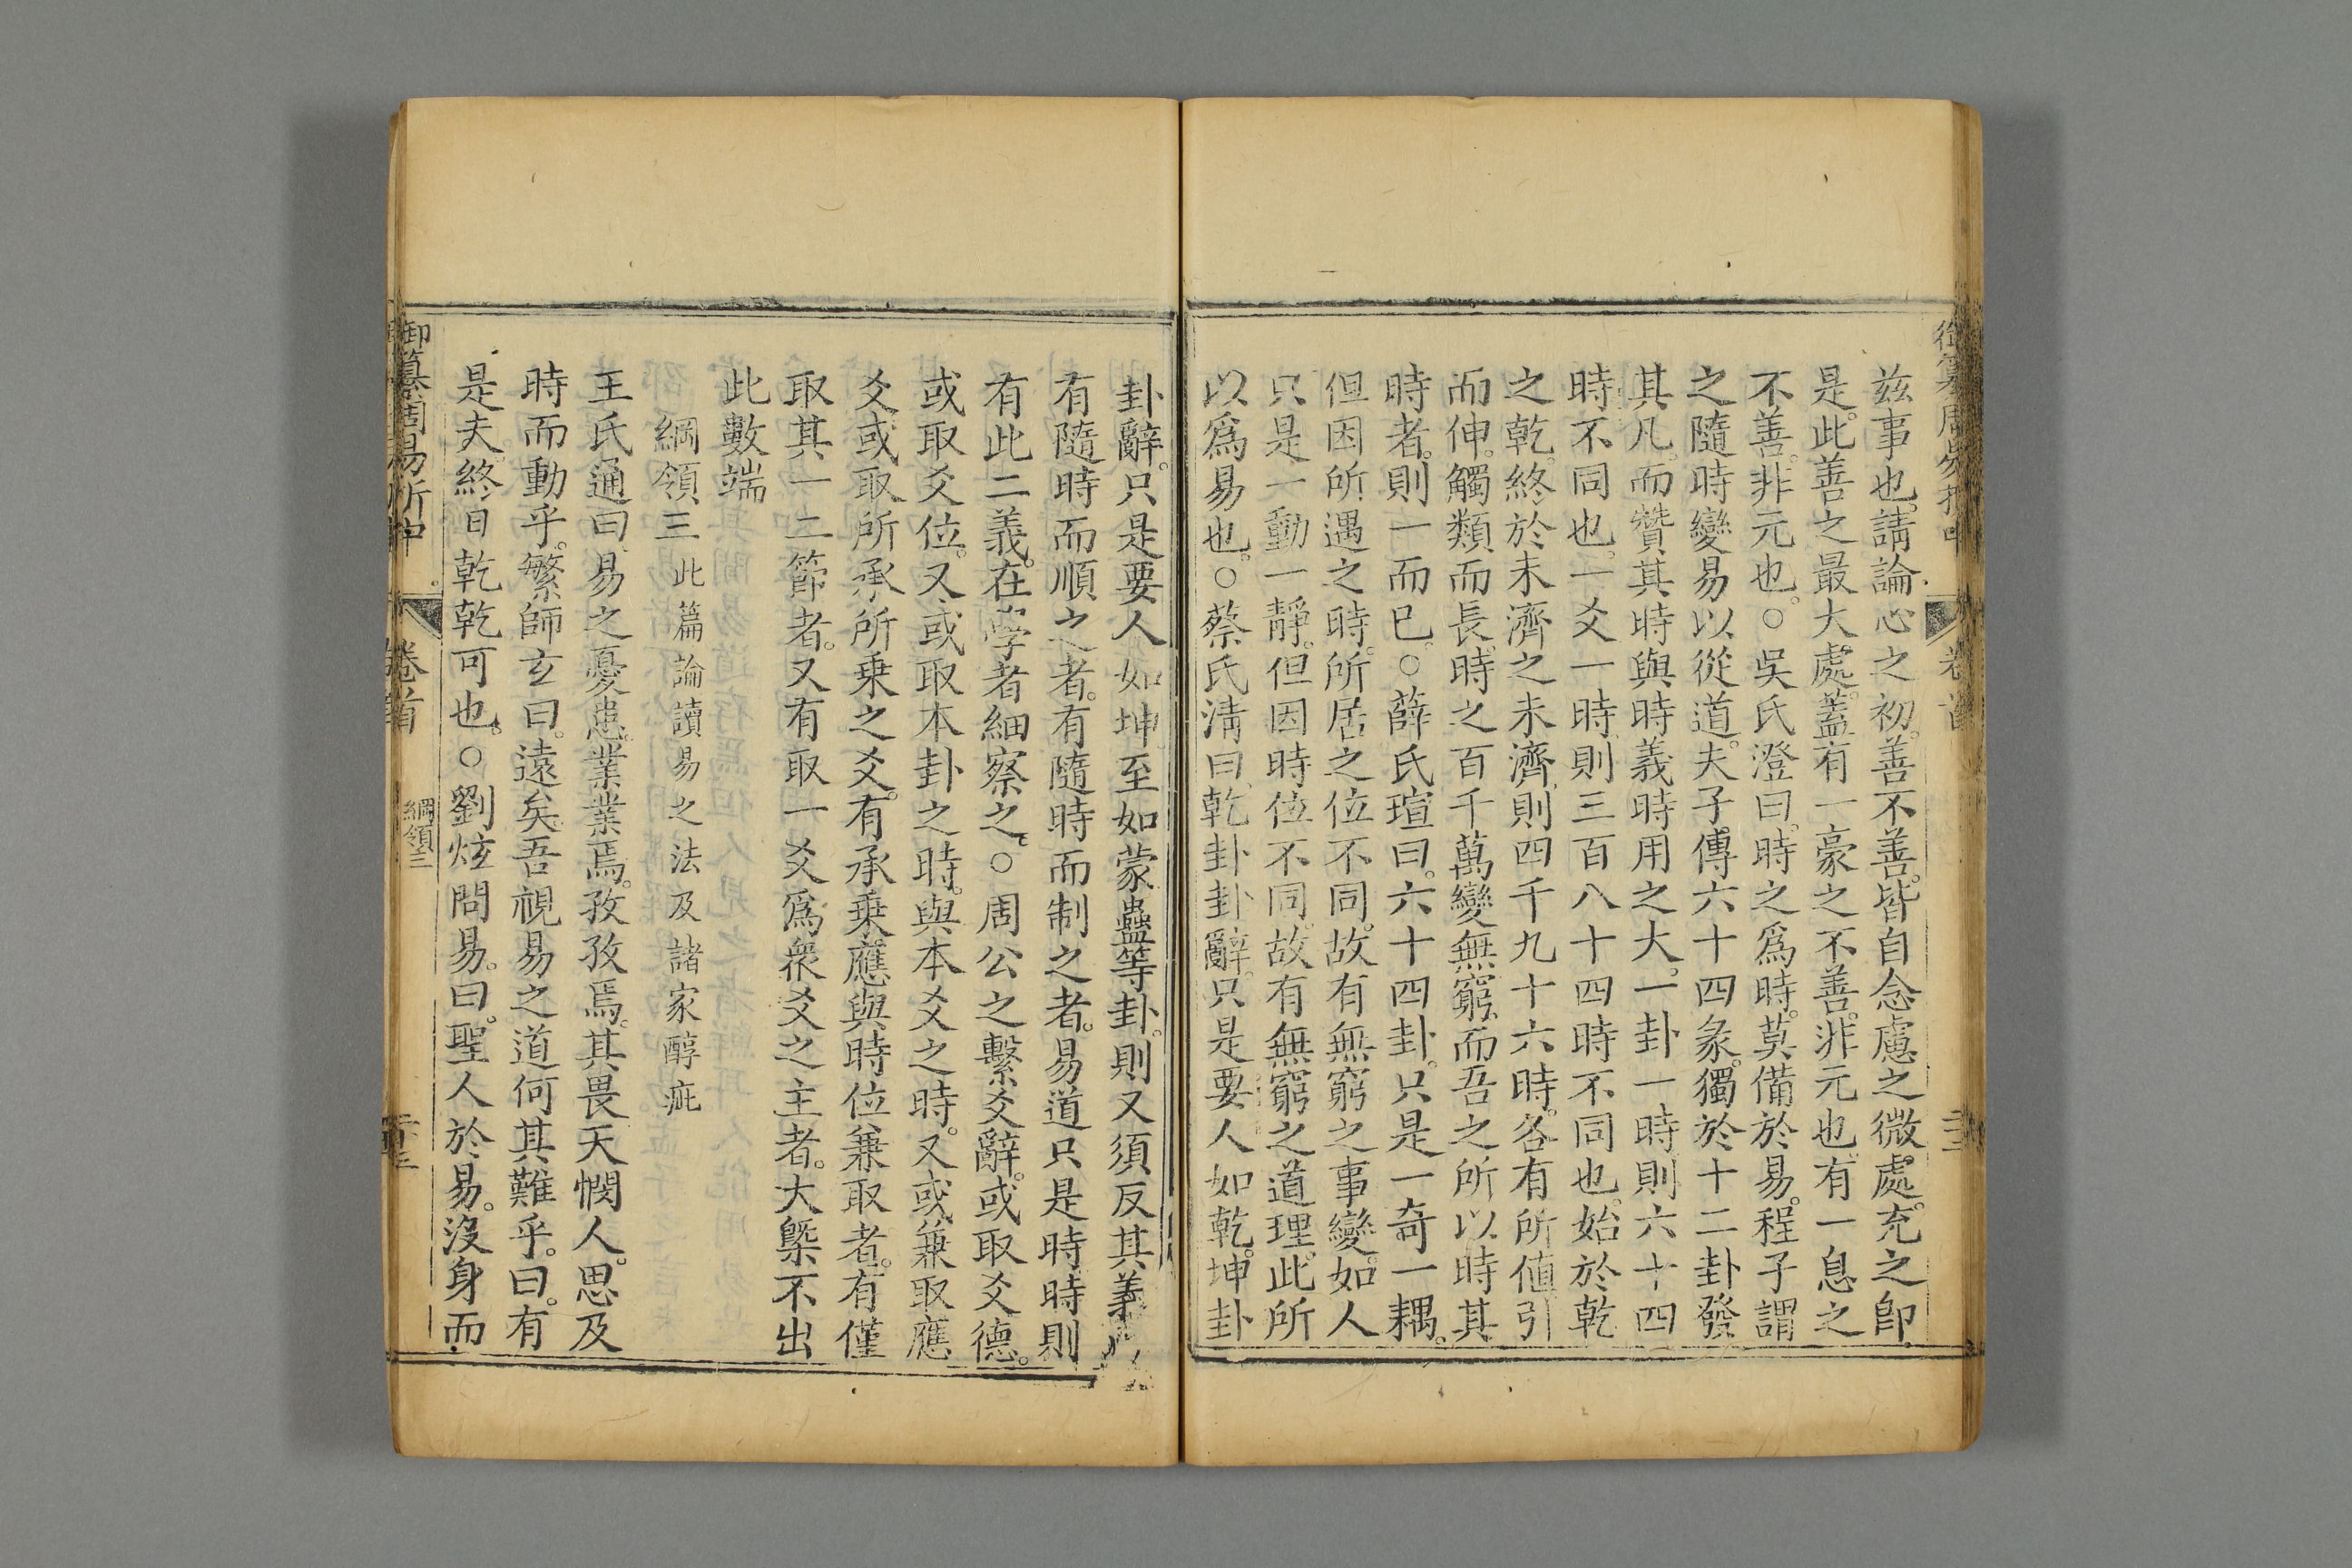 兹事也。請論心之初。善不善。皆自念慮之微處。充之卽
是。此善之最大處。蓋有一豪之不善。非元也。有一息之
不善。非元也。○吳氏澄曰。時之爲時。莫備於易。程子謂
之隨時變易以從道。夫子傳六十四彖。獨於十二卦發
其凡。而贊其時與時義時用之大。一卦一時則六十四
時不同也。一爻一時則三百八十四時不同也。始於乾
之乾。終於未濟之未濟。則四千九十六時。各有所値引
而伸。觸類而長。時之百千萬變無窮。而吾之所以時其
時者。則一而已。○薛氏瑄曰。六十四卦。只是一奇一耦。
但因所遇之時。所居之位不同。故有無窮之事變。如人
只是一動一靜。但因時位不同。故有無窮之道理。此所
以爲易也。○蔡氏淸曰。乾卦卦辭。只是要人如乾。坤卦
卦辭。只是要人如坤。至如蒙蠱等卦。則又須反其義
有隨時而順之者。有隨時而制之者。易道只是時時則
有此二義。在學者細察之。○周公之繫爻辭。或取爻德。
或取爻位。又或取本卦之時。與本爻之時。又或兼取應
爻或取所承所乘之爻。有承乘應與時位兼取者。有僅
取其一二節者。又有取一爻爲衆爻之主者。大槩不出
此數端
綱領三 此篇論讀易之法及諸家醇疵
王氏通曰。易之憂患。業業焉。孜孜焉。其畏天憫人。思及
時而動乎。繁師玄曰。遠矣吾視易之道何其難乎。曰。有
是夫。終日乾乾可也。○劉炫問易。曰。聖人於易。沒身而
御纂周易折中 卷首 綱領三